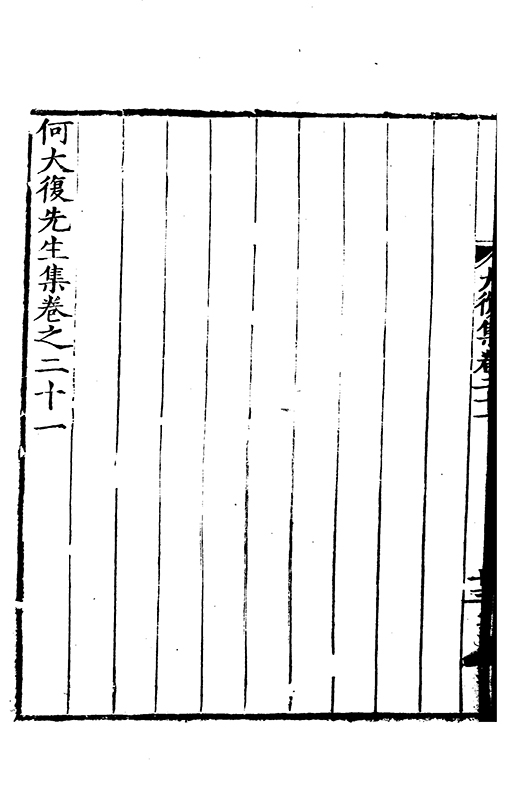 大復集卷二十一
何大復先生集卷之二十一